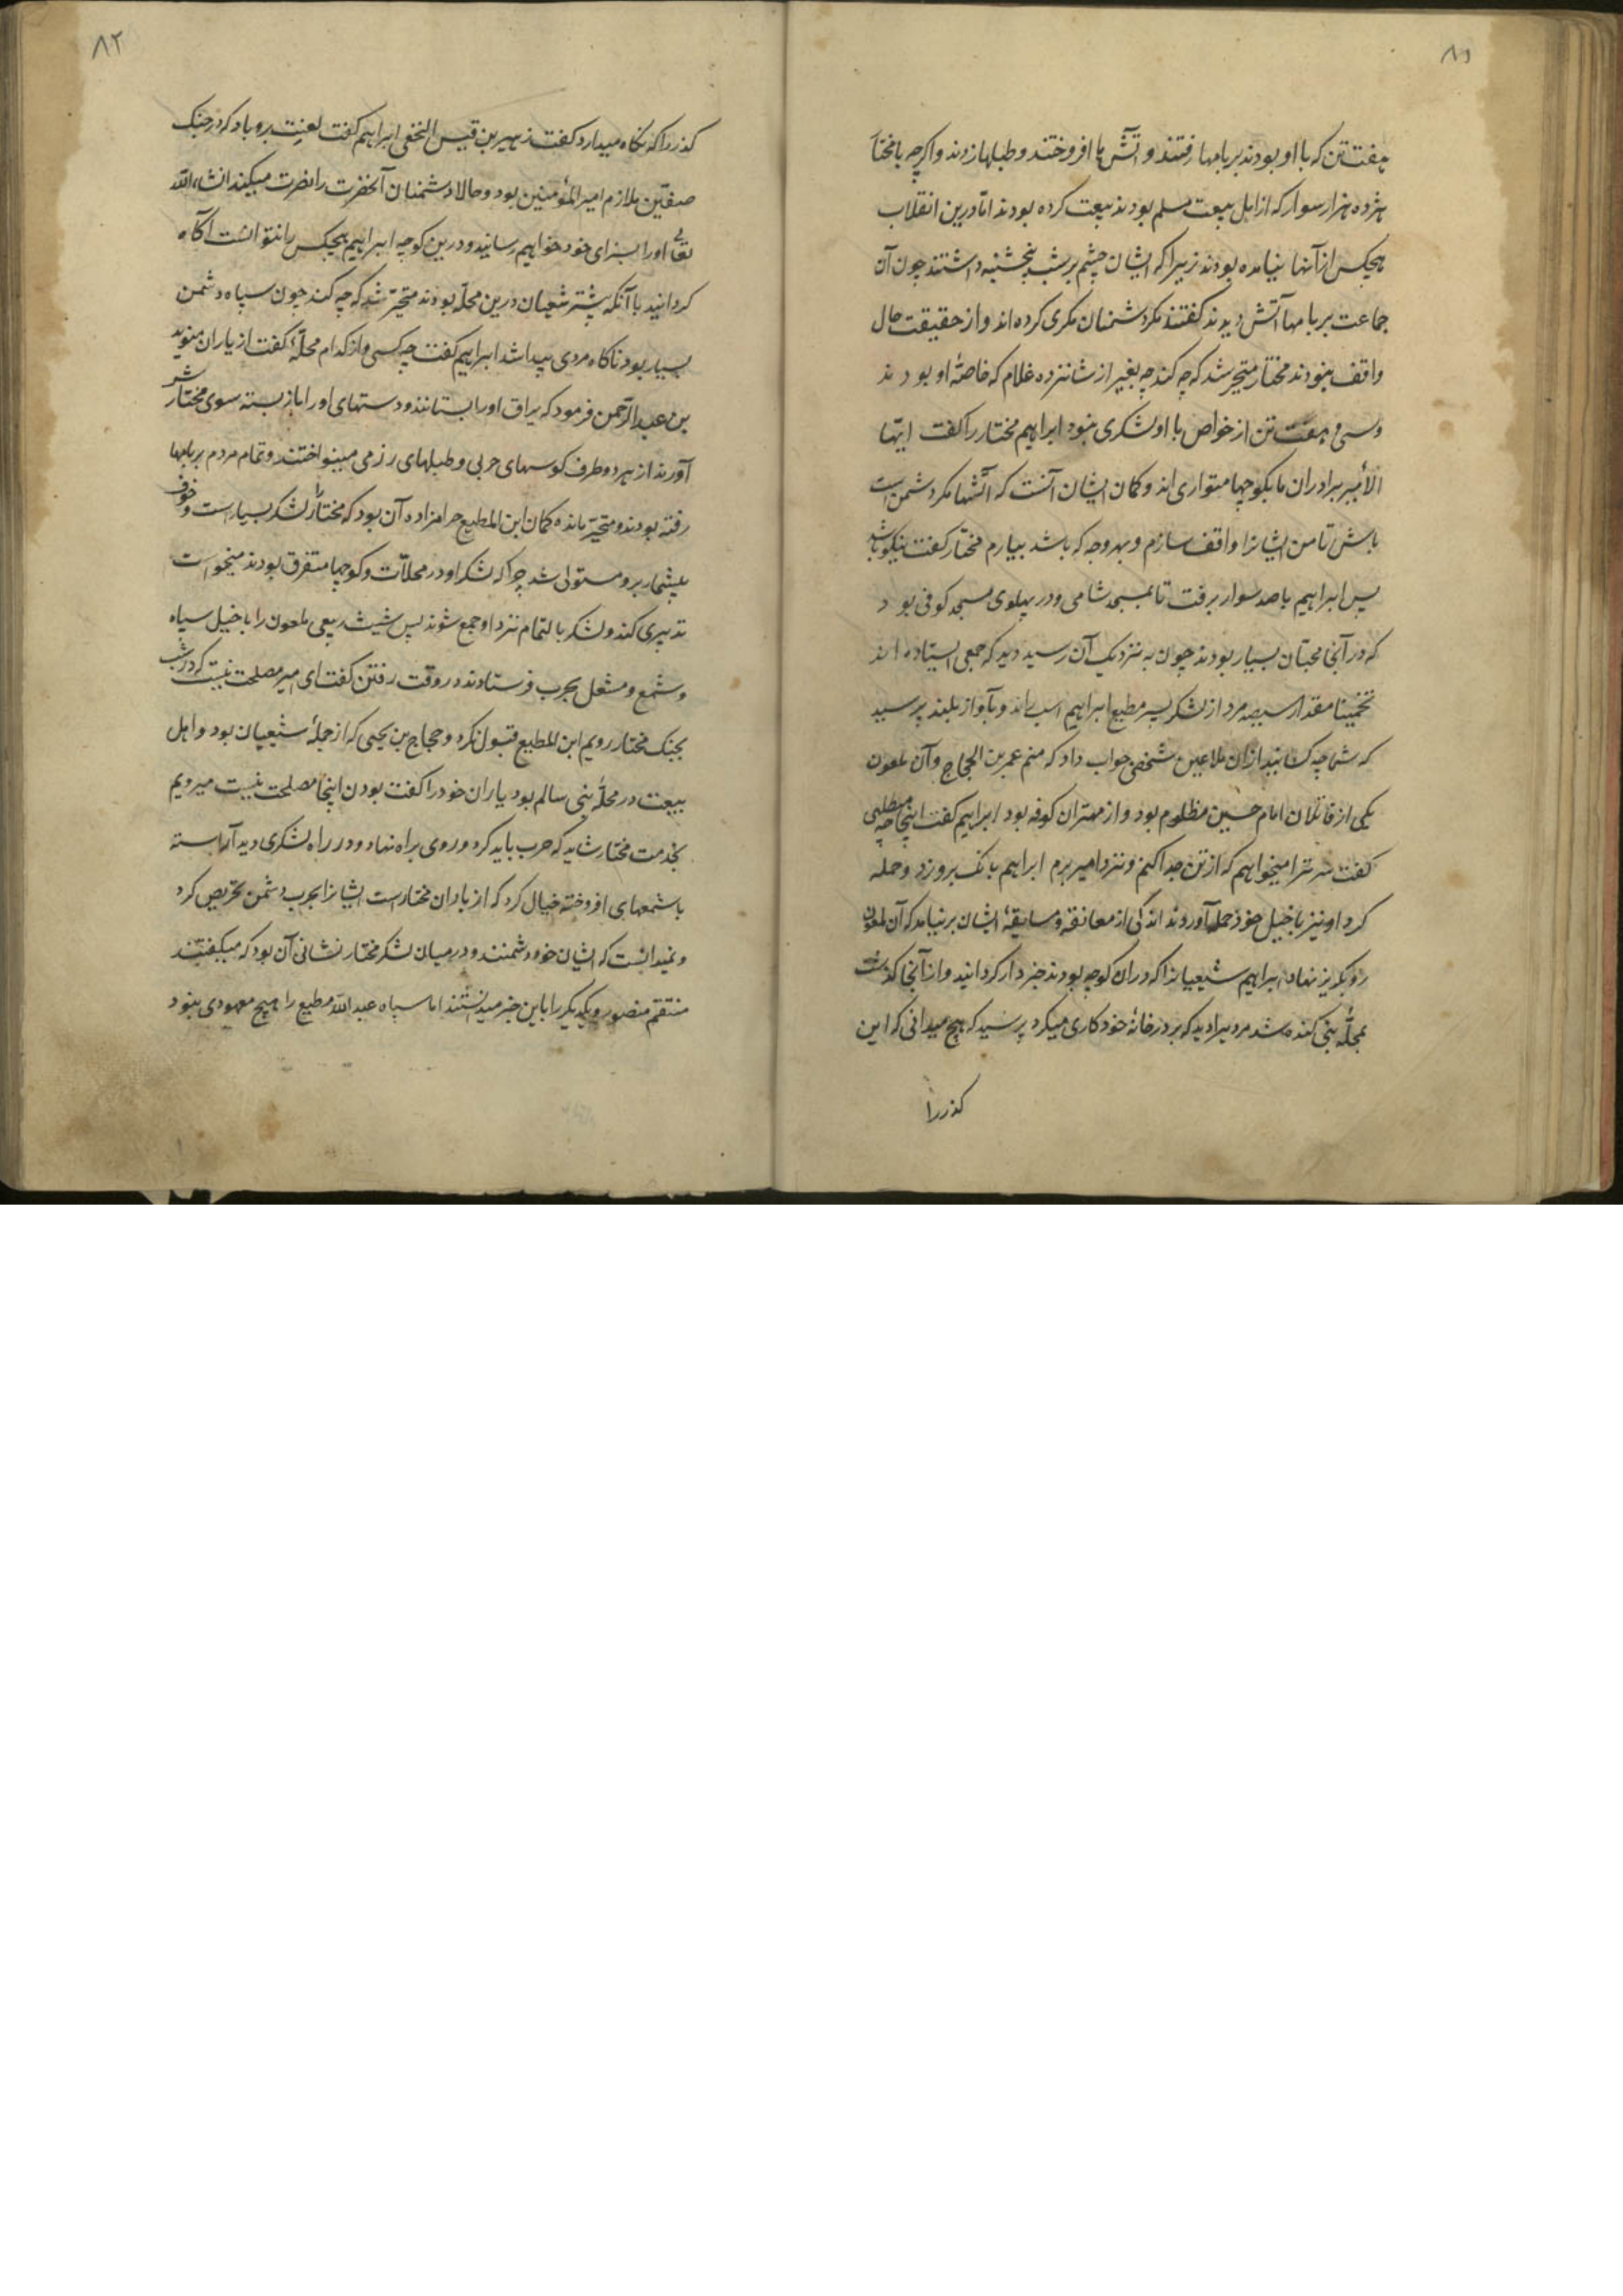 ۸۱
هفت تن که با او بودند بر بامها رفتند و آتش ها افروختند و طبلها زدند و اگرچه با مختار
هژده هزار سوار که از اهل بیعت مسلم بودند بیعت کرده بودند اما درین انقلاب
هیچکس از آنها نیامده بودند زیرا که ایشان چشم بر شب پنجشنبه داشتند چون آن
جماعت بر بامها آتش دیدند گفتند مگر دشمنان مکری کرده اند و از حقیقت حال
واقف نبودند مختار متحیر شد که چه کند چه بغیر از شانزده غلام که خاصهٔ او بودند
و سی و هفت تن از خواص با او لشکری نبود ابراهیم مختار را کفت ایّها
الأمیر برادران ما بکوچها متواری اند و کمان ایشان آنست که آتشها مکر دشمن است
باش تا من ایشانرا واقف سازم و بهر وجه که باشد بیارم مختار کفت نیکو باشد
پس ابراهیم با صد سوار برفت تا بمسجد شامی و در پهلوی مسجد کوفی بود
که در آنجا محبّان بسیار بودند چون به نزدیک آن رسید دید که جمعی ایستاده اند
تخمینا مقدار سیصد مرد از لشکر پسر مطیع ابراهیم اسب راند و بآواز بلند پرسید
که شما چه کسانید ازان ملاعین شخصی جواب داد که منم عمر بن الحجاج و آن ملعون
یکی از قاتلان امام حسین مظلوم بود و از مهتران کوفه بود ابراهیم کفت اینجا چه میطلبی
کفت سر ترا میخواهم که از تن جدا کنم و نزد امیر برم ابراهیم بانک برو زد و حمله
کرد او نیز با خیل خود حمله آوردند اندکی از معانقه و مسابقهٔ ایشان بر نیامد که آن ملعون
رو بکریز نهاد ابراهیم شیعیانرا که دران کوچه بودند خبردار کردانید و از آنجا کذشت
بمحلّهٔ بنی کنده شد مردیرا دید که بر در خانهٔ خود کاری میکرد پرسید که هیچ میدانی که این
کذررا
۸۲
کذررا که نکاه میدارد کفت زهیر بن قیس النخعی ابراهیم کفت لعنت برو باد که در جنک
صفّین ملازم امیر المؤمنین بود و حالا دشمنان آنحضرت را نصرت میکند انشاء الله
تعالی او را بسزای خود خواهیم رسانید و درین کوچه ابراهیم هیچکس را نتوانست آکاه
کردانید با آنکه بیشتر شیعیان درین محلّه بودند متحیّر شد که چه کند چون سپاه دشمن
بسیار بود ناکاه مردی پیدا شد ابراهیم کفت چه کسی و از کدام محلّهٔ کفت از یاران
بن عبد الرّحمن فرمود که یراق او را بستانند و دستهای او را باز بسته سوی مختارش
آورند از هر دو طرف کوسهای حربی و طبلهای رزمی مینواختند و تمام مردم بر بامها
رفته بودند و متحیّر مانده کمان ابن المطیع حرامزاده آن بود که مختار را لشکر بسیار است و خوف
بیشمار برو مستولی شد چرا که لشکر او در محلّات و کوچها متفرق بودند میخواست
تدبیری کند و لشکر بالتمام نزد او جمع شوند پس شیث ربعی ملعون را با خیل سپاه
و شمع و مشعل بحرب فرستادند در وقت رفتن کفت ای امیر مصلحت نیست که در شب
بجنک مختار رویم ابن المطیع قبول نکرد و حجاج بن یحیی که از جملهٔ شیعیان بود و اهل
بیعت در محلّهٔ بنی سالم بود یاران خود را کفت بودن اینجا مصلحت نیست میرویم
بخدمت مختار شاید که حرب باید کرد و روی براه نهاد و در راه لشکری دید آراسته
با شمعهای افروخته خیال کرد که از یاران مختار است ایشانرا بحرب دشمن تحریص کرد
و نمیدانست که ایشان خود دشمنند و در میان لشکر مختار نشانی آن بود که میکفتند
منتقم منصور و یکدیکر را باین خبر میدانستند اما سپاه عبد الله مطیع را هیچ معهودی نبود